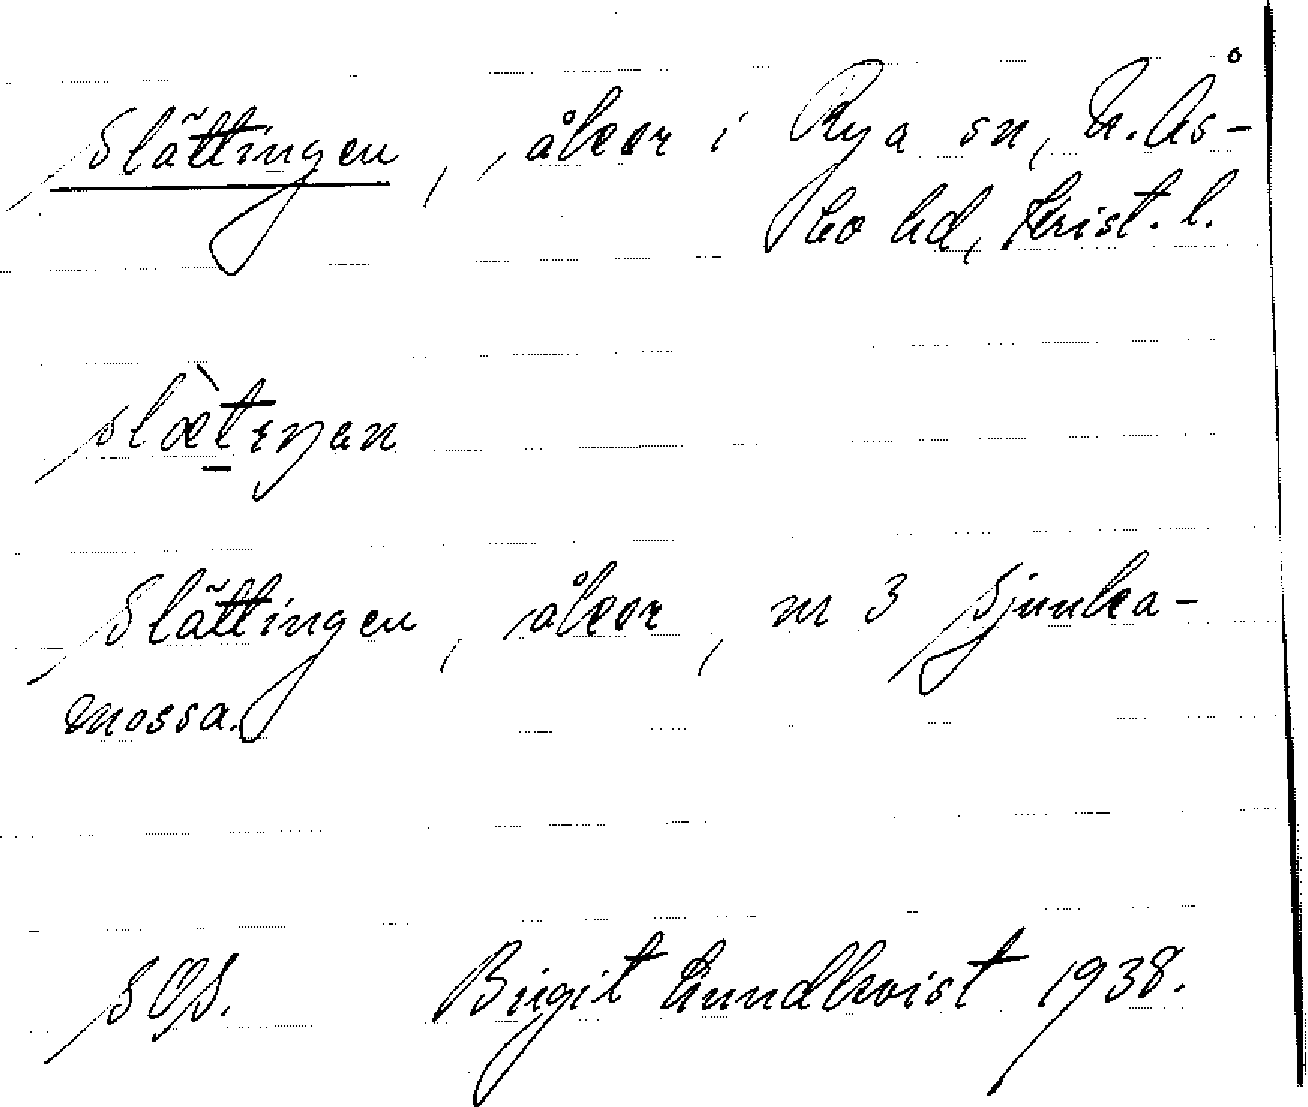 Slättingen, åker i Rya sn, N. Ås-
bo hd, Krist. l.
slæ̀t̲ɛŋan
Slättingen, åker, nr 3 Sjunka-
mossa.
Birgit Lundkvist 1938.